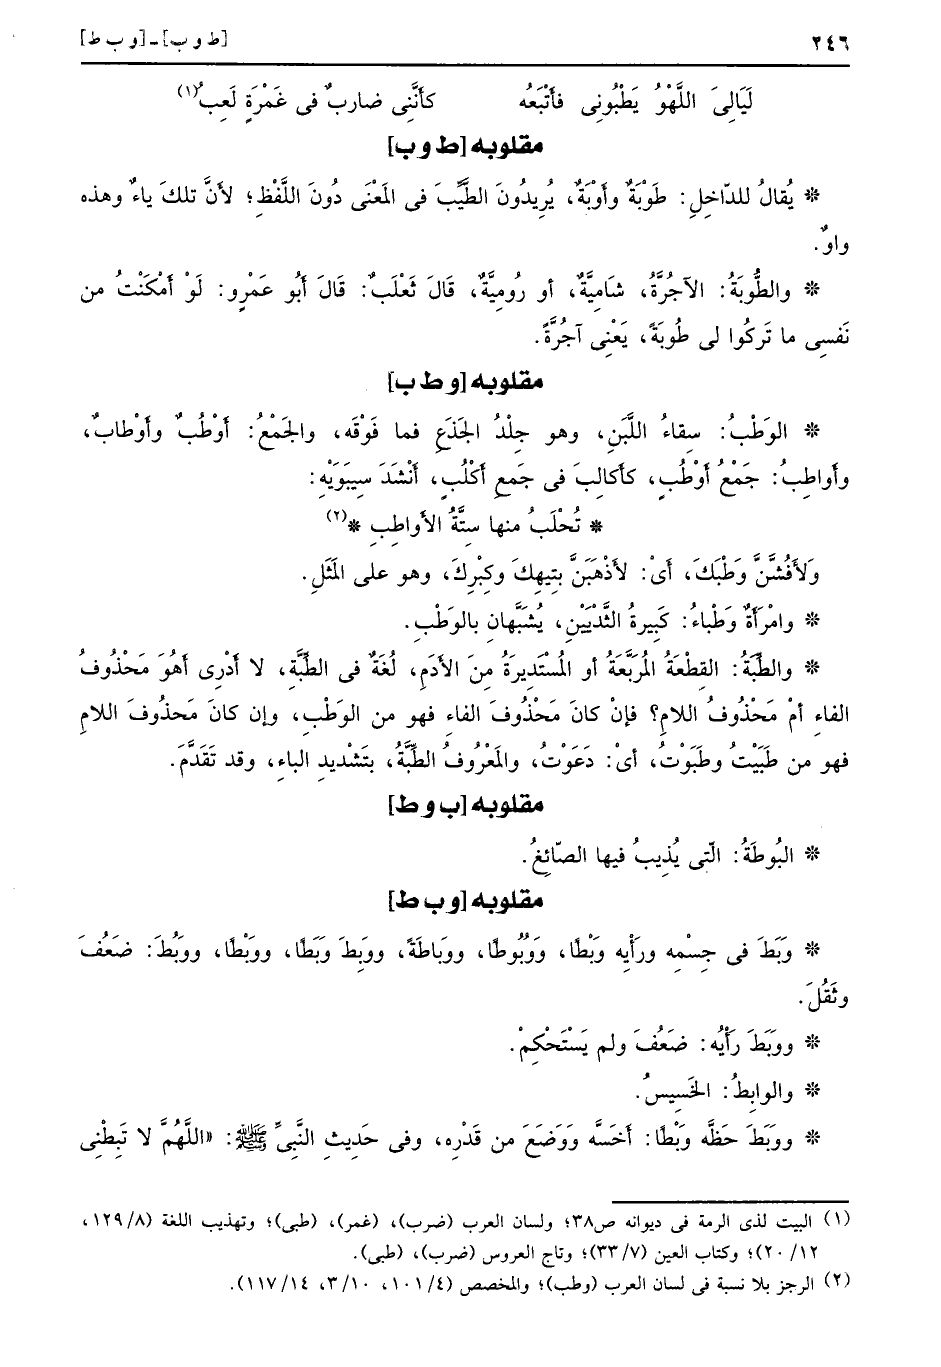 ٢٤٦ [ط و ب] ـ [و ب ط]
لَيَالِىَ اللَّهْوُ يَطْبُونِى فأَتْبَعُه كأنَّنِى ضاربٌ فى غَمْرَةٍ لَعِبُ(١)
مقلوبه [ط و ب]
* يُقالُ للدّاخِلِ: طَوْبَةٌ وأَوْبَةٌ، يُرِيدُونَ الطَّيِّبَ فى المَعْنَى دُونَ اللَّفْظِ؛ لأنَّ تلكَ ياءٌ وهذه
واوٌ.
* والطُّوبَةُ: الآجُرَّةُ، شَامِيَّةٌ، أو رُومِيَّةٌ، قَالَ ثَعْلَبٌ: قَالَ أَبُو عَمْرٍو: لَوْ أَمْكَنْتُ من
نَفسِى ما تَركُوا لى طُوبَةً، يَعْنِى آجُرَّةً.
مقلوبه [و ط ب]
* الوَطْبُ: سِقاءُ اللَّبَنِ، وهو جِلْدُ الجَذَعِ فما فَوْقَه، والجَمْعُ: أَوْطُبٌ وأَوْطابٌ،
وأواطِبُ: جَمْعُ أَوْطُبٍ، كأَكالِبَ فى جَمعِ أَكْلُبٍ، أَنْشَدَ سِيبَوَيْهِ:
* تُحْلَبُ منها سِتَّةُ الأَواطِبِ *(٢)
وَلأَفُشَّنَّ وَطْبَكَ، أىْ: لأَذْهَبَنَّ بتِيهِكَ وكِبْرِكَ، وهو على المَثَلِ.
* وامْرَأَةٌ وَطْباءُ: كَبِيرةُ الثَّدْيَيْنِ، يُشَبَّهانِ بالوَطْبِ.
* والطِّبَةُ: القطْعَةُ المُرَبَّعَةُ أو المُسْتَدِيرَةُ مِنَ الأَدَمِ، لُغَةٌ فى الطِّبَّةِ، لا أَدْرِى أَهُوَ مَحْذُوفُ
الفاءِ أمْ مَحْذُوفُ اللامِ؟ فإنْ كانَ مَحْذُوفَ الفاءِ فهو من الوَطْبِ، وإن كانَ مَحذُوفَ اللامِ
فهو من طَبَيْتُ وطَبَوْتُ، أىْ: دَعَوْتُ، والمَعْرُوفُ الطِّبَّةُ، بتَشْدِيدِ الباءِ، وقد تَقَدَّمَ.
مقلوبه [ب و ط]
* البُوطَةُ: الّتى يُذِيبُ فيها الصّائِغُ.
مقلوبه [و ب ط]
* وَبَطَ فى جِسْمِه ورَأْيِه وَبْطًا، وَوُبُوطًا، ووَباطَةً، ووَبِطَ وَبَطًا، ووَبْطًا، ووَبُطَ: ضَعُفَ
وثَقُلَ.
* ووَبَطَ رَأْيُه: ضَعُفَ ولم يَسْتَحْكِمْ.
* والوابِطُ: الخَسِيسُ.
* ووَبَطَ حَظَّه وَبْطًا: أَخَسَّه وَوَضَعَ من قَدْرِه، وفى حَدِيثِ النَّبِىِّ ﷺ: «اللَّهُمَّ لا تَبِطْنِى
(١) البيت لذى الرمة فى ديوانه ص٣٨؛ ولسان العرب (ضرب)، (غمر)، (طبى)؛ وتهذيب اللغة (٨/ ١٢٩،
١٢/ ٢٠)؛ وكتاب العين (٧/ ٣٣)؛ وتاج العروس (ضرب)، (طبى).
(٢) الرجز بلا نسبة فى لسان العرب (وطب)؛ والمخصص (٤/ ١٠١، ١٠/ ٣، ١٤/ ١١٧).